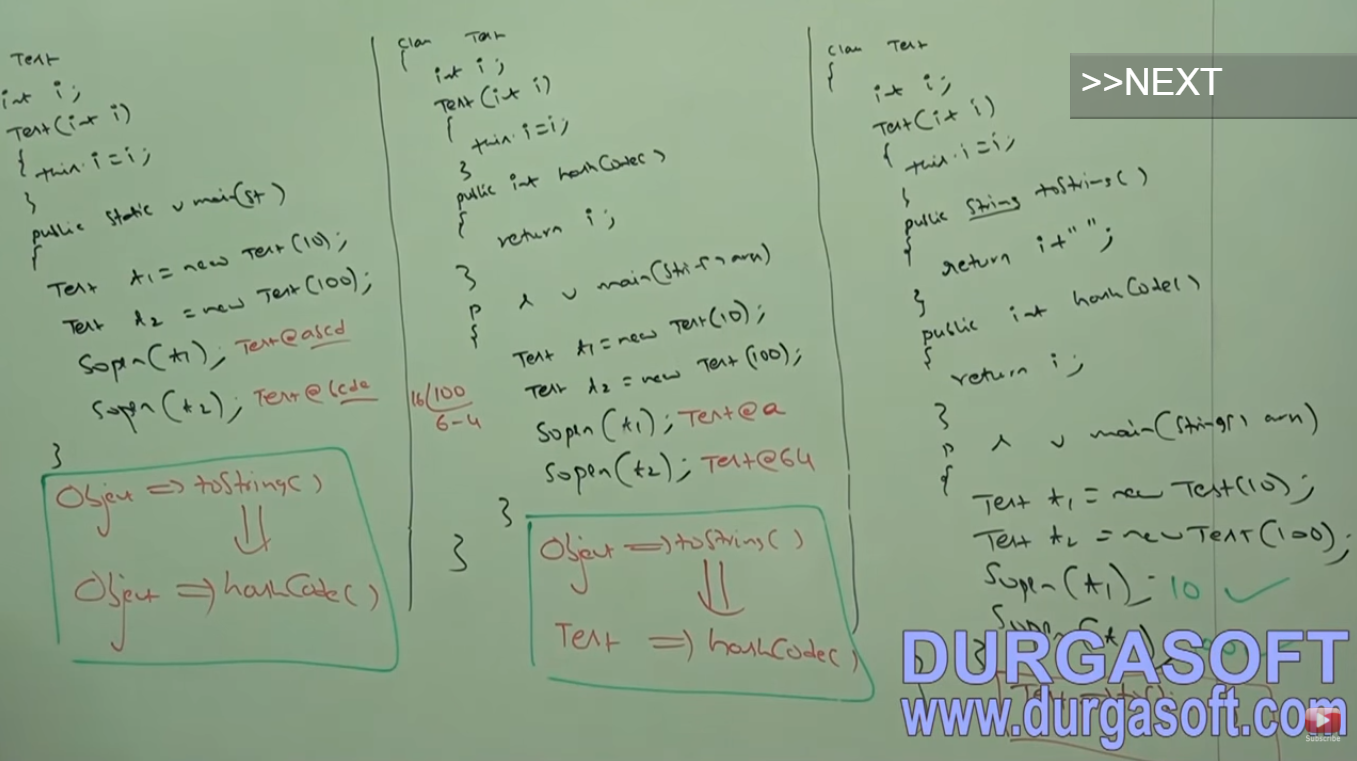 Test
int i;
Test(int i)
{ this.i=i;
}
public static v main(St )
{
Test t1 = new Test(10);
Test t2 = new Test(100);
Sopln(t1); Test@ascd
Sopln(t2); Test@
}
Object => toString()
Object => hashCode()
class Test
{
int i;
Test(int i)
{
this.i=i;
}
public int hashCode()
{
return i;
}
p s v main(String[] args)
{
Test t1 = new Test(10);
Test t2 = new Test(100);
16/100
6-4
Sopln(t1); Test@a
Sopln(t2); Test@64
}
}
Object => toString()
Test => hashCode()
class Test
{
int i;
Test(int i)
{
this.i=i;
}
public String toString()
{
return i+"";
}
public int hashCode()
{
return i;
}
p s v main(String[] args)
{
Test t1 = new Test(10);
Test t2 = new Test(100);
Sopln(t1); 10
}
}
>>NEXT
DURGASOFT
www.durgasoft.com
Subscribe